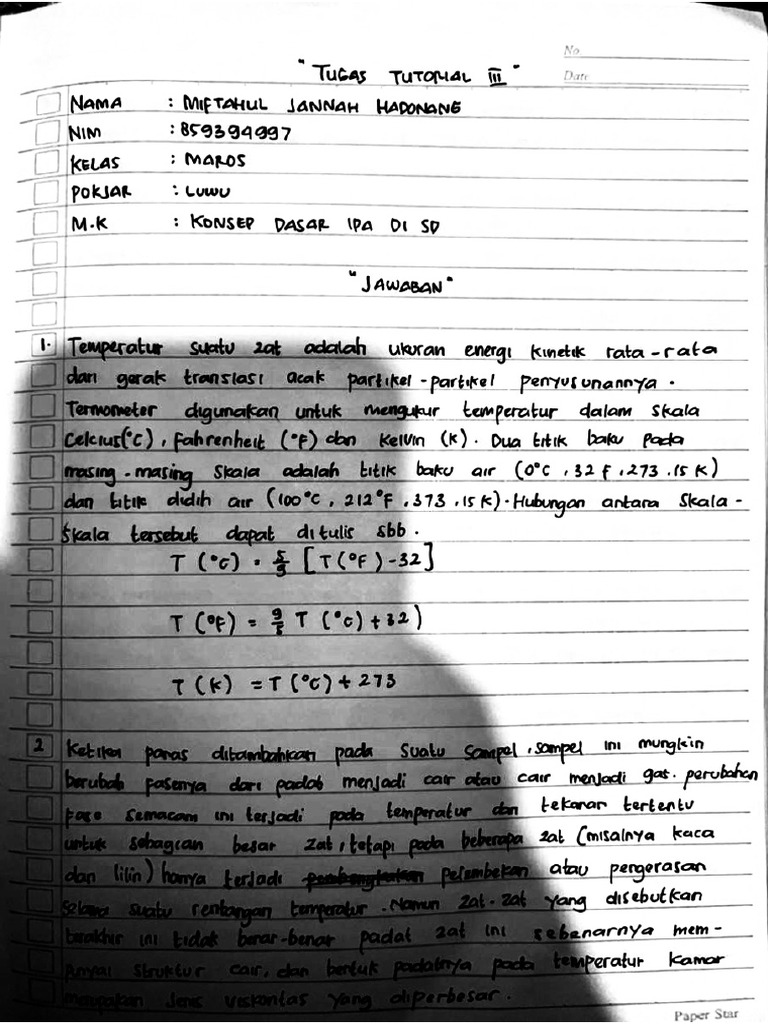 No.
"Tugas Tutorial III"
Date
Nama : Miftahul Jannah Hadonang
NIM : 859394997
Kelas : Maros
Pokjar : Luwu
M.K : Konsep Dasar IPA di SD
"Jawaban"
1. Temperatur suatu zat adalah ukuran energi kinetik rata-rata
dari gerak translasi acak partikel-partikel penyusunannya.
Termometer digunakan untuk mengukur temperatur dalam skala
Celcius(°C), Fahrenheit (°F) dan Kelvin (K). Dua titik baku pada
masing-masing skala adalah titik baku air (0°C, 32 F, 273.15 K)
dan titik didih air (100°C, 212°F, 373.15 K). Hubungan antara skala-
skala tersebut dapat ditulis sbb.
T (°C) = 5/9 [T(°F) - 32]
T (°F) = 9/5 T (°C) + 32)
T (K) = T(°C) + 273
2 Ketika panas ditambahkan pada suatu sampel, sampel ini mungkin
berubah fasenya dari padat menjadi cair atau cair menjadi gas. perubahan
fase semacam ini terjadi pada temperatur dan tekanan tertentu
untuk sebagian besar zat, tetapi pada beberapa zat (misalnya kaca
dan lilin) hanya terjadi pelembekan atau pengerasan
selama suatu rentangan temperatur. Namun zat-zat yang disebutkan
terakhir ini tidak benar-benar padat zat ini sebenarnya mem-
punyai struktur cair, dan bentuk padatnya pada temperatur kamar
merupakan jenis viskositas yang diperbesar.
Paper Star